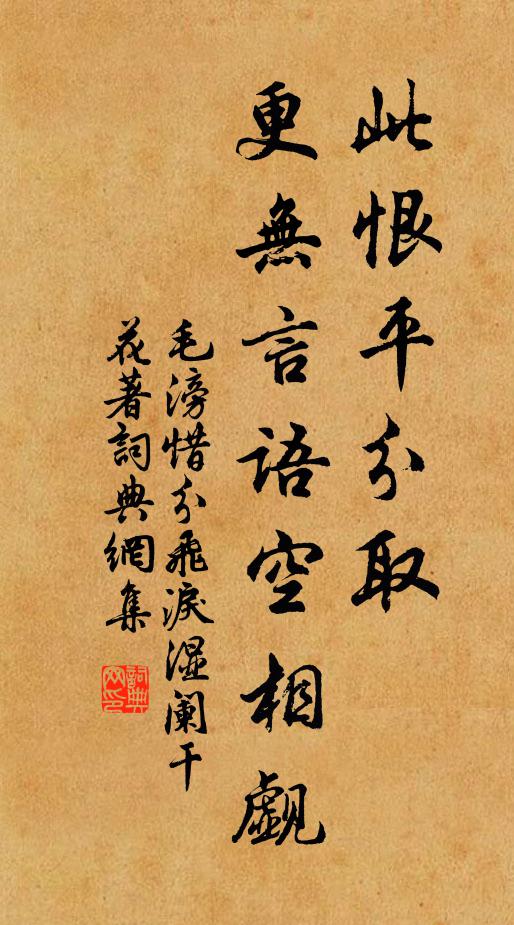 此恨平分取
更無言語空相覷
毛滂惜分飛淚濕闌干
花著詞典網集
詞典網印